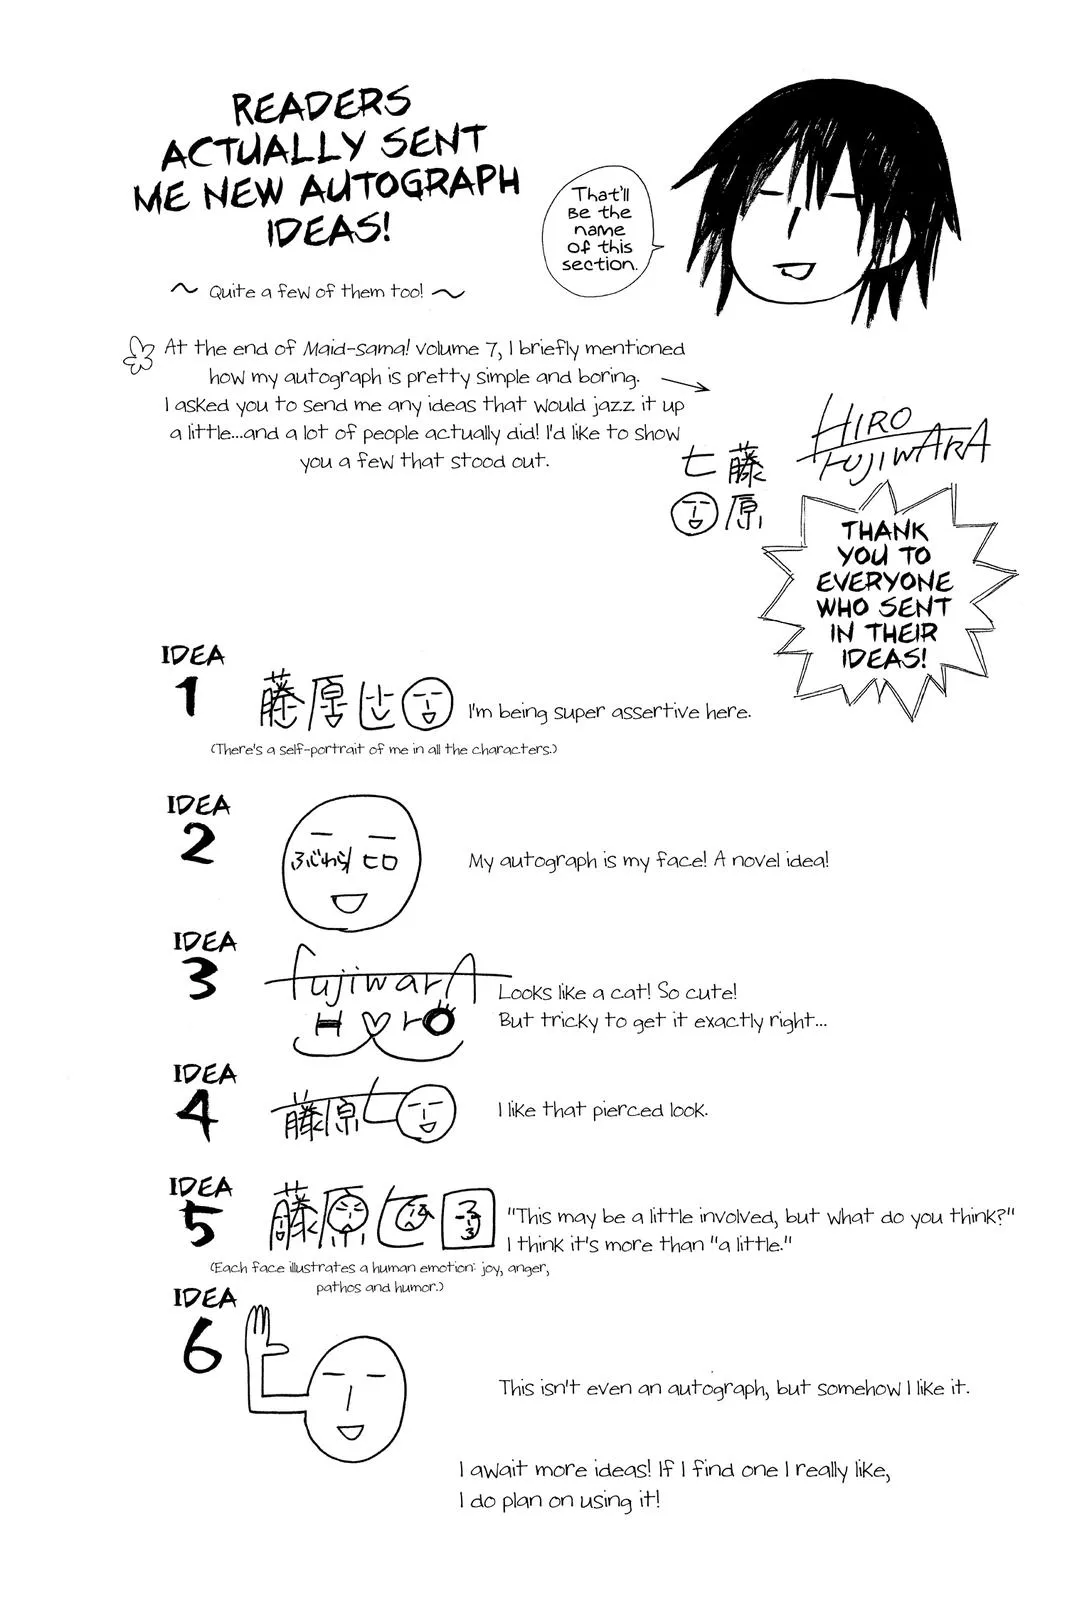 READERS
ACTUALLY SENT
ME NEW AUTOGRAPH
IDEAS!
That'll
Be the
name
of this
section.
~ Quite a few of them too! ~
At the end of Maid-sama! volume 7, I briefly mentioned
how my autograph is pretty simple and boring.
I asked you to send me any ideas that would jazz it up
a little...and a lot of people actually did! I'd like to show
you a few that stood out.
HIRO
FUJIWARA
ヒ藤
原
THANK
YOU TO
EVERYONE
WHO SENT
IN THEIR
IDEAS!
IDEA
1
藤原ヒロ
I'm being super assertive here.
(There's a self-portrait of me in all the characters.)
IDEA
2
ふじわら ヒロ
My autograph is my face! A novel idea!
IDEA
3
fujiwarA
HirO
Looks like a cat! So cute!
But tricky to get it exactly right...
IDEA
4
藤原ヒ
I like that pierced look.
IDEA
5
藤原ヒロ
"This may be a little involved, but what do you think?"
I think it's more than "a little."
(Each face illustrates a human emotion: joy, anger,
pathos and humor.)
IDEA
6
This isn't even an autograph, but somehow I like it.
I await more ideas! If I find one I really like,
I do plan on using it!